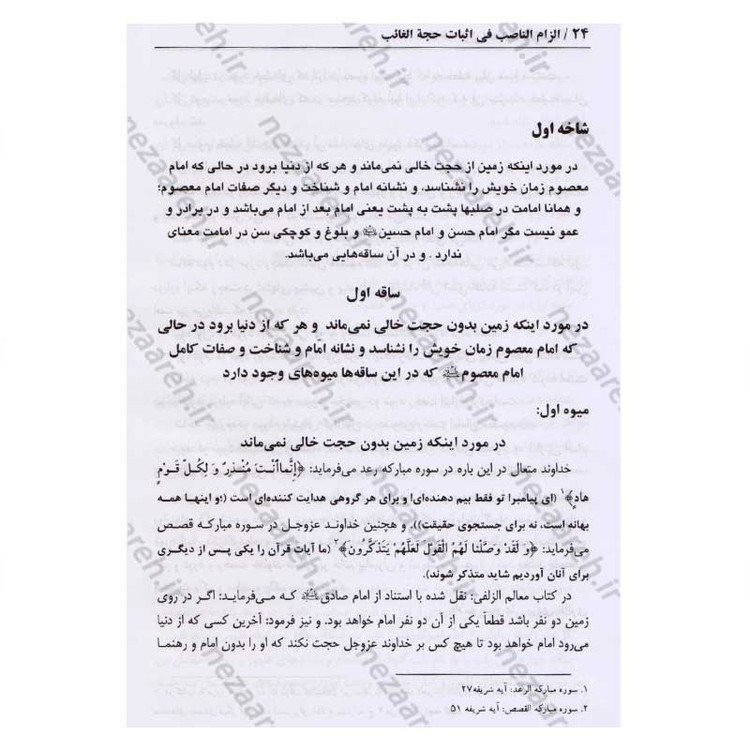 ۲۴ / الزام الناصب فی اثبات حجة الغائب
شاخه اول
در مورد اینکه زمین از حجت خالی نمی‌ماند و هر که از دنیا برود در حالی که امام
معصوم زمان خویش را نشناسد، و نشانه امام و شناخت و دیگر صفات امام معصوم؛
و همانا امامت در صلبها پشت به پشت یعنی امام بعد از امام می‌باشد و در برادر و
عمو نیست مگر امام حسن و امام حسین و بلوغ و کوچکی سن در امامت معنای
ندارد . و در آن ساقه‌هایی می‌باشد.
ساقه اول
در مورد اینکه زمین بدون حجت خالی نمی‌ماند و هر که از دنیا برود در حالی
که امام معصوم زمان خویش را نشناسد و نشانه امام و شناخت و صفات کامل
امام معصوم که در این ساقه‌ها میوه‌های وجود دارد
میوه اول:
در مورد اینکه زمین بدون حجت خالی نمی‌ماند
خداوند متعال در این باره در سوره مبارکه رعد می‌فرماید: ﴿إِنَّمَا أَنْتَ مُنْذِرٌ وَ لِكُلِّ قَوْمٍ
هَادٍ﴾۱ (ای پیامبر! تو فقط بیم دهنده‌ای! و برای هر گروهی هدایت کننده‌ای است (؛و اینها همه
بهانه است، نه برای جستجوی حقیقت)). و همچنین خداوند عزوجل در سوره مبارکه قصص
می‌فرماید: ﴿وَ لَقَدْ وَصَّلْنَا لَهُمُ الْقَوْلَ لَعَلَّهُمْ يَتَذَكَّرُونَ﴾۲ (ما آیات قرآن را یکی پس از دیگری
برای آنان آوردیم شاید متذکر شوند).
در کتاب معالم الزلفی: نقل شده با استناد از امام صادق که می‌فرماید: اگر در روی
زمین دو نفر باشد قطعاً یکی از آن دو نفر امام خواهد بود. و نیز فرمود: آخرین کسی که از دنیا
می‌رود امام خواهد بود تا هیچ کس بر خداوند عزوجل حجت نکند که او را بدون امام و رهنما
۱. سوره مبارکه الرعد: آیه شریفه۲۷
۲. سوره مبارکه القصص: آیه شریفه ۵۱
nezaareh.ir